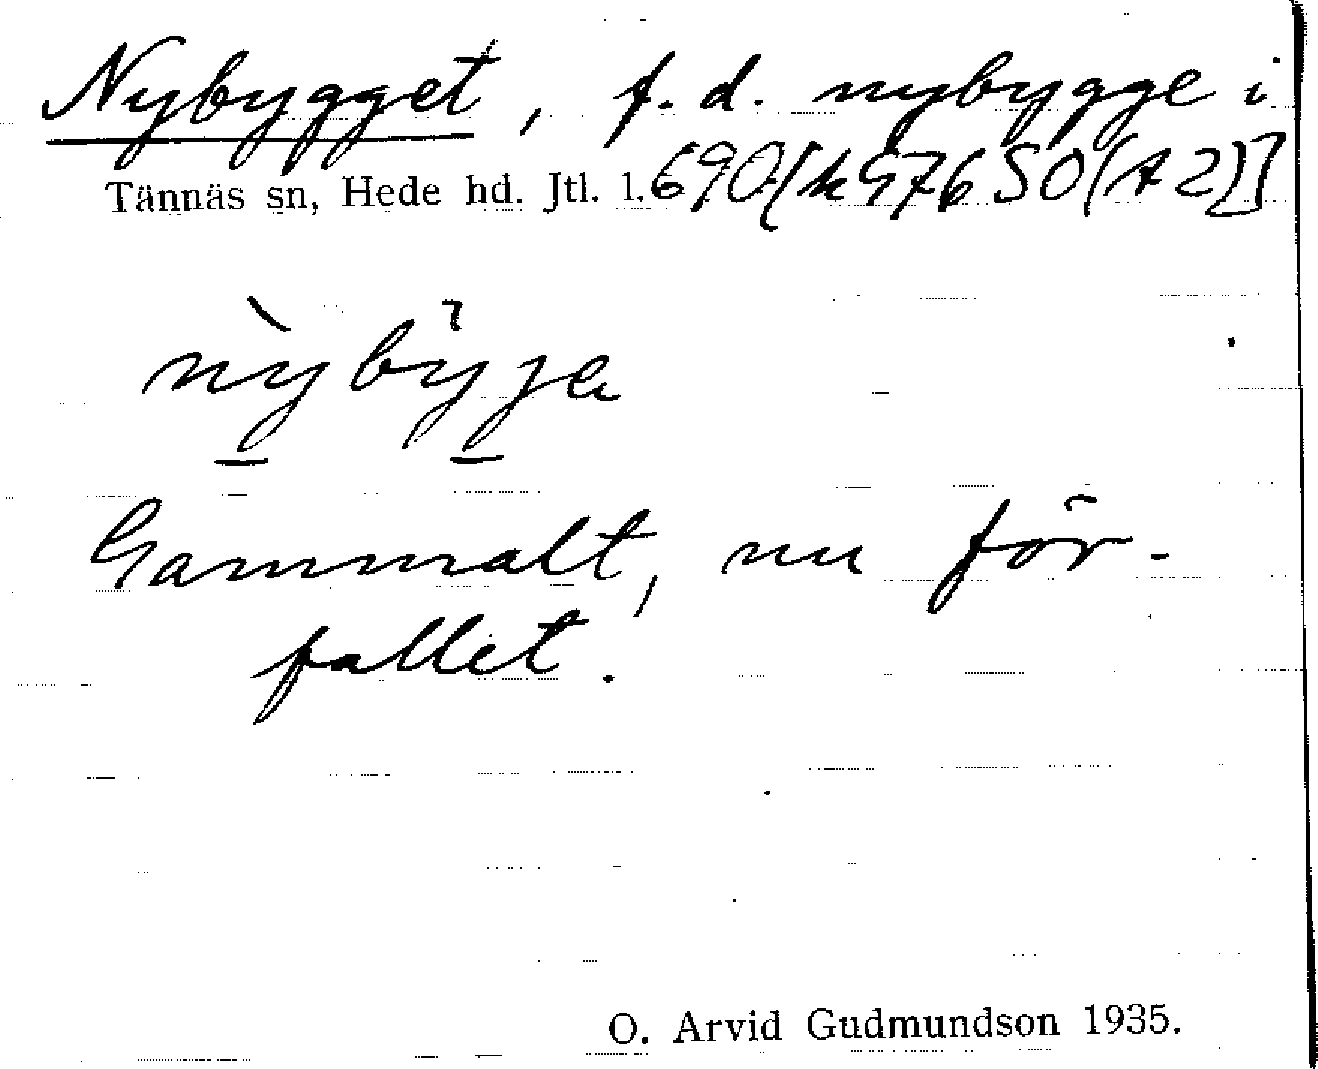 Nybygget, f. d. nybygge i
Tännäs sn, Hede hd. Jtl. l. 690 [k 976 SO (A 2)]
nỳbÿje
Gammalt, nu för-
fallet.
O. Arvid Gudmundson 1935.